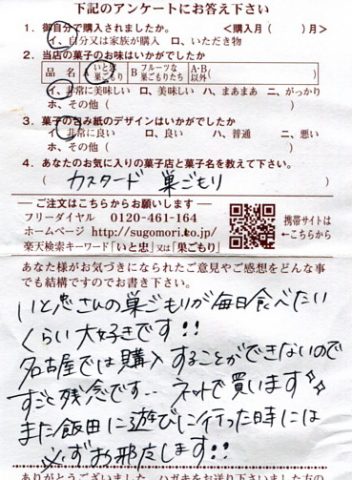 下記のアンケートにお答え下さい
1. 御自分で購入されますか。 <購入月( )月>
イ、自分又は家族が購入 ロ、いただき物
2. 当店の菓子のお味はいかがでしたか
品名 A いと忠巣ごもり B フルーツな巣ごもりたち A・B以外( )
イ、非常に美味しい ロ、美味しい ハ、まあまあ ニ、がっかり
ホ、その他( )
3. 菓子の包み紙のデザインはいかがでしたか
イ、非常に良い ロ、良い ハ、普通 ニ、悪い
ホ、その他( )
4. あなたのお気に入りの菓子店と菓子名を教えて下さい。
( カスタード 巣ごもり )
―ご注文はこちらからお願いします―
フリーダイヤル 0120-461-164
ホームページ http://sugomori.to.jp/
楽天検索キーワード「いと忠」又は「巣ごもり」
携帯サイトは
←こちらから
あなた様がお気づきになられたご意見やご感想をどんな事
でも結構ですのでお書き下さい。
いと忠さんの巣ごもりが毎日食べたい
くらい大好きです!!
名古屋では購入することができないので
すごく残念です.. ネットで買います
また飯田に遊びに行った時には
必ずお邪魔します!!
ありがとうございました。ハガキをお送り下さいました方の